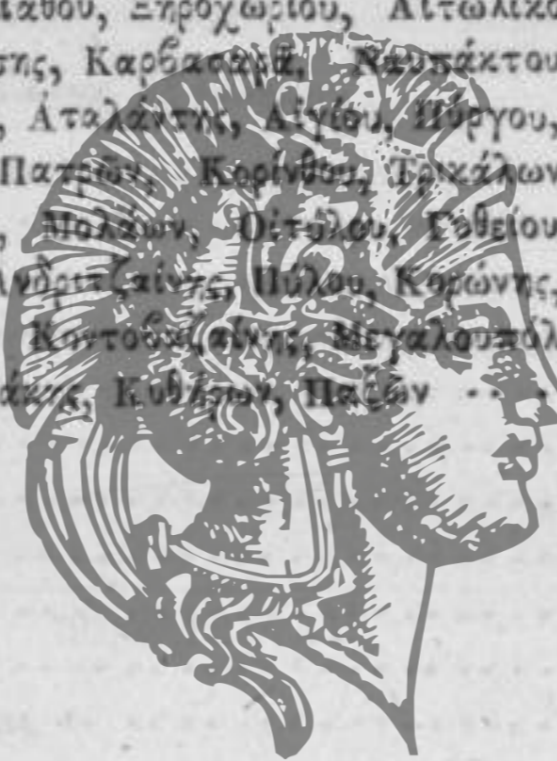 ιάθου, Ξηροχωρίου, Αἰτωλικο
σης, Καρβασαρᾶ, Ναυπάκτου
, Ἀταλάντης, Αἰγίου, Πύργου,
Πατρῶν, Κορίνθου, Τρικάλων
, Μολάων, Οἰτύλου, Γυθείου
Ἀνδριτζαίνης, Πύλου, Κορώνης
Κοντοβαζαίνης, Μεγαλουπόλ
άκης, Κυθήρων, Παξῶν